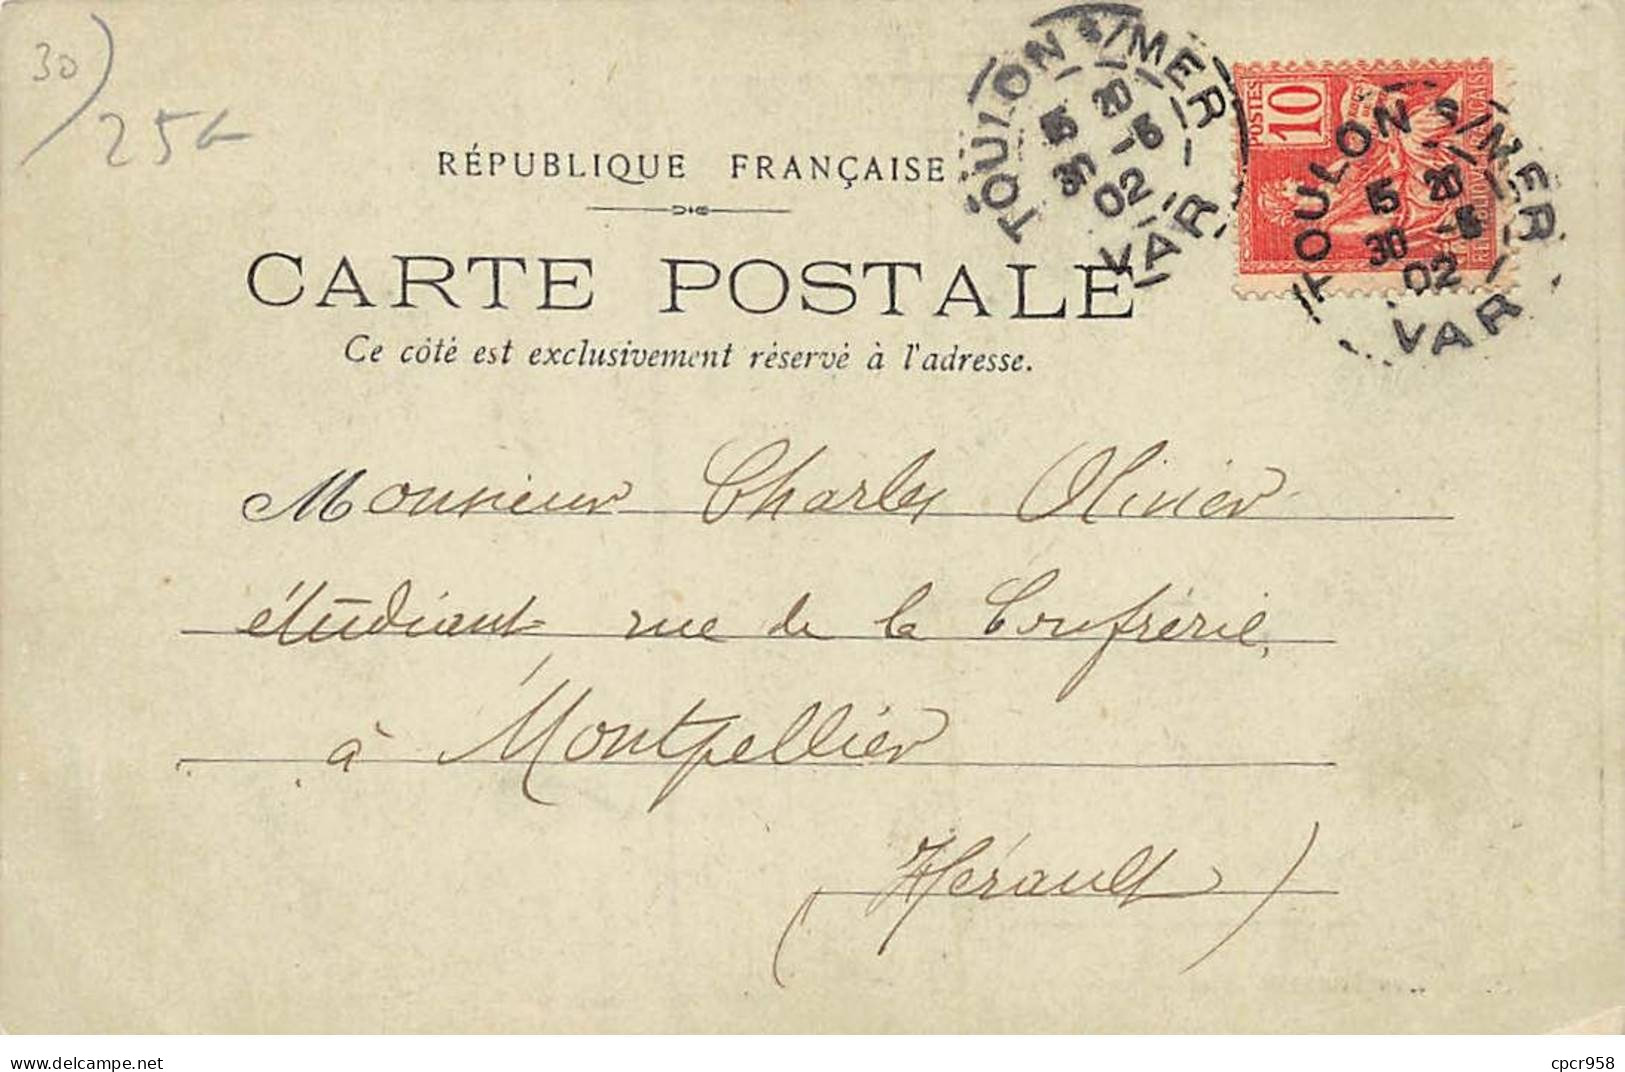 30
25
RÉPUBLIQUE FRANÇAISE
CARTE POSTALE
Ce côté est exclusivement réservé à l'adresse.
TOULON S/MER
15 20
30 -5
02
VAR
POSTES
10
TOULON S/MER
15 20
30 -5
02
VAR
Monsieur Charles Olivier
étudiant rue de la Confrérie,
à Montpellier
(Hérault)
delcampe.net
cpcr958